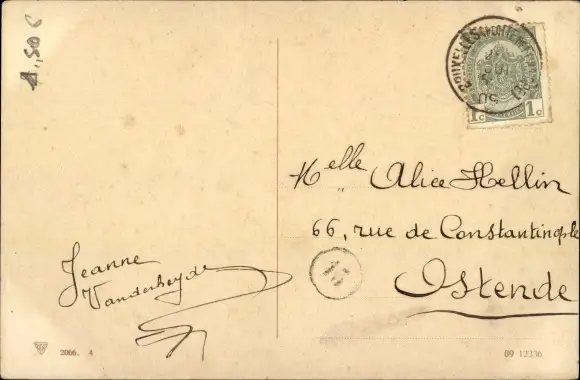 1,50 €
BRUXELLES
1c 1c
Melle Alice Hellin
66, rue de Constantinople
Ostende
Jeanne
Vanderheyde
2066. 4
09 12336